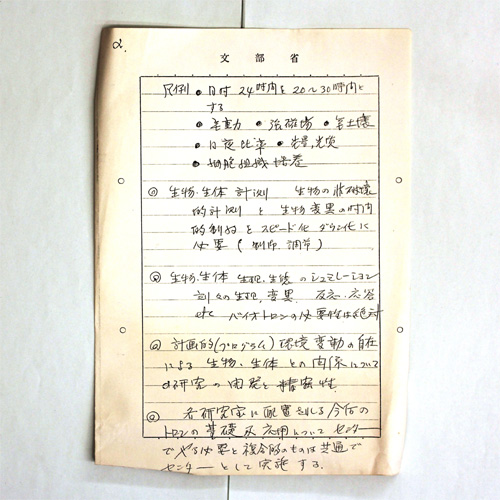 2.
文部省
凡例 ● 日付 24時間を 20～30時間と
する
● 無重力 ● 強磁場 ● 無土壌
● 日夜比率 ● 光量,光炎
● 細胞組織培養
◎ 生物・生体 計測 生物の非破壊
的計測 と 生物変異の時間
的制約とスピード化 ダウン化に
必要 (制御,調節)
◎ 生物・生体 生理・生態 のシュミレーション
生理,変異 反応・応答
etc バイオトロンの必要性は絶対
◎ 計画的(プログラム)環境変動の自在
による 生物・生体 との関係について
研究の 発と 精密性
◎ 各研究室に配置される今後の
トロンの基礎及応用について センター
でやる必要と複合的のものは共通で
センターとして実施する.